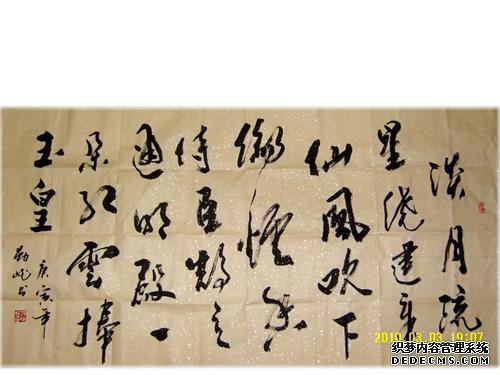 淡月疏
星绕建章
仙風吹下
御爐香
侍臣鵠立
通明殿一
朵红雲捧
玉皇
庚寅年
书
2010.03.03 19:07
织梦内容管理系统
DEDECMS.COM